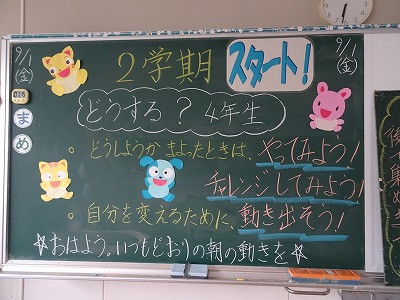 9/1(金)
2学期 スタート!
9/1(金)
どうする? 4年生
。どうしようか まよったときは、やってみよう!
チャレンジしてみよう!
。自分を変えるために、動き出そう!
☆おはよう。いつもどおりの朝の動きを☆
まめ